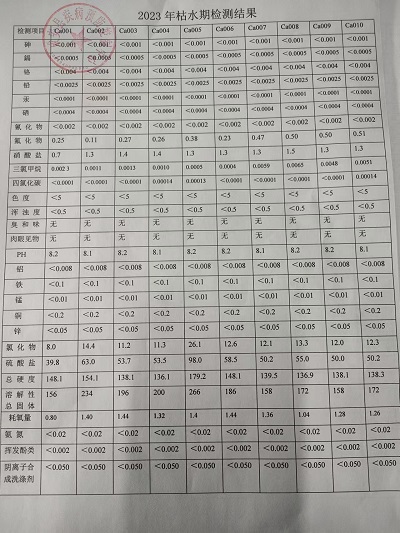 2023 年枯水期检测结果
检测项目 Ca001 Ca002 Ca003 Ca004 Ca005 Ca006 Ca007 Ca008 Ca009 Ca010
砷 <0.001 <0.001 <0.001 <0.001 <0.001 <0.001 <0.001 <0.001 <0.001 <0.001
镉 <0.0005 <0.0005 <0.0005 <0.0005 <0.0005 <0.0005 <0.0005 <0.0005 <0.0005 <0.0005
铬 <0.004 <0.004 <0.004 <0.004 <0.004 <0.004 <0.004 <0.004 <0.004 <0.004
铅 <0.0025 <0.0025 <0.0025 <0.0025 <0.0025 <0.0025 <0.0025 <0.0025 <0.0025 <0.0025
汞 <0.0001 <0.0001 <0.0001 <0.0001 <0.0001 <0.0001 <0.0001 <0.0001 <0.0001 <0.0001
硒 <0.0004 <0.0004 <0.0004 <0.0004 <0.0004 <0.0004 <0.0004 <0.0004 <0.0004 <0.0004
氰化物 <0.002 <0.002 <0.002 <0.002 <0.002 <0.002 <0.002 <0.002 <0.002 <0.002
氟化物 0.25 0.11 0.27 0.26 0.38 0.23 0.47 0.50 0.50 0.51
硝酸盐 0.7 1.3 1.4 1.4 1.3 1.3 1.3 1.5 1.3 1.3
三氯甲烷 0.0023 0.0011 0.0013 0.0010 0.0005 0.0004 0.0059 0.0065 0.0048 0.0051
四氯化碳 <0.0001 <0.0001 <0.0001 0.00014 0.00013 <0.0001 <0.0001 <0.0001 <0.0001 0.00014
色度 <5 <5 <5 <5 <5 <5 <5 <5 <5 <5
浑浊度 <0.5 <0.5 <0.5 <0.5 <0.5 <0.5 <0.5 <0.5 <0.5 <0.5
臭和味 无 无 无 无 无 无 无 无 无 无
肉眼见物 无 无 无 无 无 无 无 无 无 无
PH 8.2 8.1 8.2 8.1 8.2 8.2 8.2 8.1 8.2 8.1
铝 <0.008 <0.008 <0.008 <0.008 <0.008 <0.008 <0.008 <0.008 <0.008 <0.008
铁 <0.1 <0.1 <0.1 <0.1 <0.1 <0.1 <0.1 <0.1 <0.1 <0.1
锰 <0.01 <0.01 <0.01 <0.01 <0.01 <0.01 <0.01 <0.01 <0.01 <0.01
铜 <0.2 <0.2 <0.2 <0.2 <0.2 <0.2 <0.2 <0.2 <0.2 <0.2
锌 <0.05 <0.05 <0.05 <0.05 <0.05 <0.05 <0.05 <0.05 <0.05 <0.05
氯化物 8.0 14.4 11.2 11.3 26.1 12.6 12.1 13.3 12.0 12.3
硫酸盐 39.8 63.0 53.7 53.5 98.0 58.5 50.2 55.0 50.0 50.2
总硬度 148.1 154.1 138.1 136.1 179.2 148.1 139.5 136.9 138.1 138.3
溶解性 156 234 196 200 266 186 158 172 158 172
总固体
耗氧量 0.80 1.40 1.44 1.32 1.4 1.44 1.36 1.04 1.28 1.26
氨氮 <0.02 <0.02 <0.02 <0.02 <0.02 <0.02 <0.02 <0.02 <0.02 <0.02
挥发酚类 <0.002 <0.002 <0.002 <0.002 <0.002 <0.002 <0.002 <0.002 <0.002 <0.002
阴离子合 <0.050 <0.050 <0.050 <0.050 <0.050 <0.050 <0.050 <0.050 <0.050 <0.050
成洗涤剂